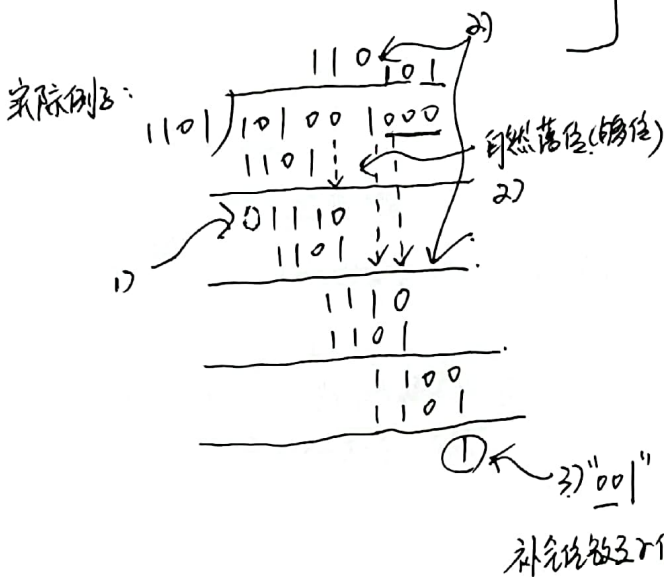 2)
110101
实际例子:
1101)101001000
1101
自然落位(错位)
2)
01110
1101
1)
1110
1101
1100
1101
1
3)"001"
补完位数至r个